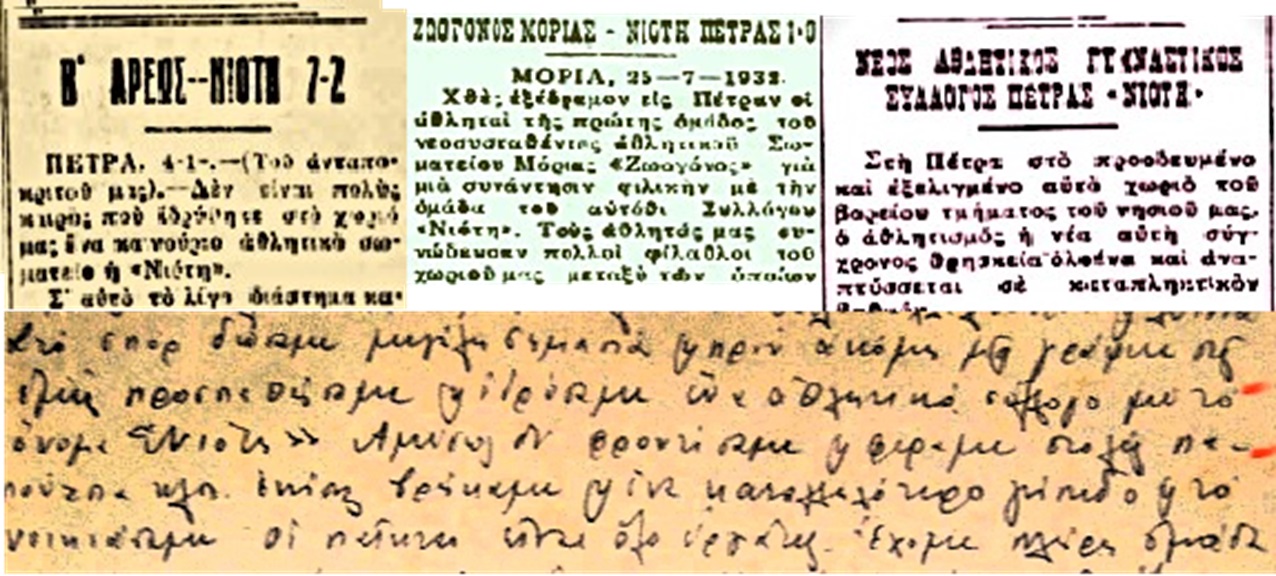 Β' ΑΡΕΩΣ--ΝΙΟΤΗ 7-2
ΠΕΤΡΑ. 4-1-.—(Τοῦ ἀνταπο-
κριτοῦ μας).—Δὲν εἶναι πολὺς
καιρὸς ποὺ ἱδρύθηκε στὸ χωριό
μας ἕνα καινούριο ἀθλητικὸ σω-
ματεῖο ἡ «Νιότη».
Σ' αὐτὸ τὸ λίγο διάστημα κα-
ΖΩΟΓΟΝΟΣ ΜΟΡΙΑΣ - ΝΙΟΤΗ ΠΕΤΡΑΣ 1-0
ΜΟΡΙΑ, 25—7—1932.
Χθὲς ἐξέδραμον εἰς Πέτραν οἱ
ἀθληταὶ τῆς πρώτης ὁμάδος τοῦ
νεοσυσταθέντος ἀθλητικοῦ Σω-
ματείου Μόριας «Ζωογόνος» γιὰ
μιὰ συνάντησιν φιλικὴν μὲ τὴν
ὁμάδα τοῦ αὐτόθι Συλλόγου
«Νιότη». Τοὺς ἀθλητάς μας συ-
νώδευσαν πολλοὶ φίλαθλοι τοῦ
χωριοῦ μας μεταξὺ τῶν ὁποίων
ΝΕΟΣ ΑΘΛΗΤΙΚΟΣ ΓΥΜΝΑΣΤΙΚΟΣ
ΣΥΛΛΟΓΟΣ ΠΕΤΡΑΣ «ΝΙΟΤΗ»
Στὴ Πέτρα στὸ προοδευμένο
καὶ ἐξελιγμένο αὐτὸ χωριὸ τοῦ
βορείου τμήματος τοῦ νησιοῦ μας,
ὁ ἀθλητισμὸς ἡ νέα αὐτὴ σύγ-
χρονος θρησκεία ὁλοένα καὶ ἀνα-
πτύσσεται σὲ καταπληκτικὸν
Στὸ σπὸρ δώσαμε μεγάλη σημασία πρὶν ἀκόμη μᾶς γράψετε
ἐμεῖς προσπαθήσαμε ἱδρύσαμε ἕνα ἀθλητικὸ σύλλογο μὲ τὸ
ὄνομα «Νιότη» Ἀμέσως φροντίσαμε φέραμε στολὴ πα-
πούτσια κλπ. Ἐπίσης βρήκαμε ἕνα καταλληλότερο γήπεδο τὸ
νοικιάσαμε οἱ παῖκται εἶναι ὅλο ἐργάτες. Ἔχομε πλήρη ὁμάδα